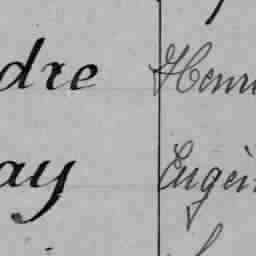 dre Henri
ay Eugèn